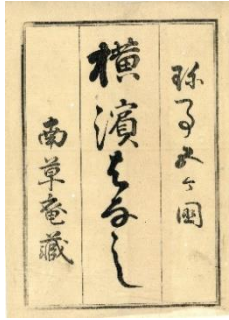 珎事五ヶ國
横濱はなし
南草庵藏